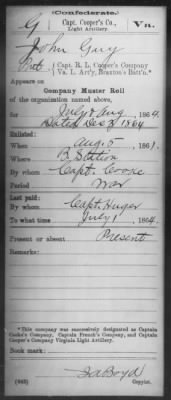 Confederate.
G Capt. Cooper's Co., Va.
Light Artillery.
John Guy
Pvt { Capt. R. L. Cooper's Company
Va. L. Art'y, Braxton's Batt'n.*
Appears on
Company Muster Roll
of the organization named above,
for July & Aug, 1864.
Dated Dec 8 1864
Enlisted:
When Aug. 5, 1861.
Where B. Station
By whom Capt. Cooke
Period War
Last paid:
By whom Capt. Huger
To what time July 1, 1864.
Present or absent Present
Remarks:
*This company was successively designated as Captain
Cooke's Company, Captain French's Company, and Captain
Cooper's Company Virginia Light Artillery.
Book mark:
(642) Boyd
Copyist.